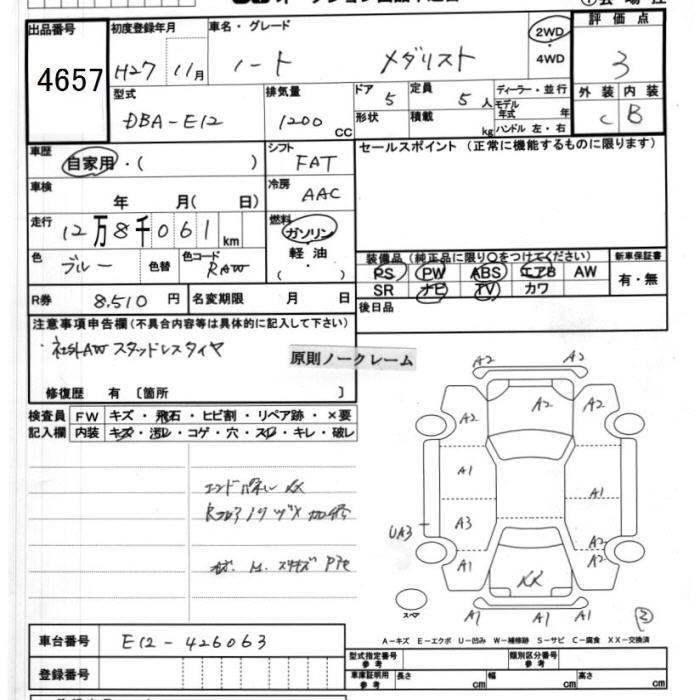 出品番号
4657
初度登録年月
H27 11月
車名・グレード
ノート メダリスト
2WD
・
4WD
評価点
3
外装 内装
C B
型式
DBA-E12
排気量
1200 CC
ドア 5
形状
定員 5 人
積載 kg
ディーラー・並行
モデル年式 年
ハンドル 左・右
車歴
自家用・( )
シフト
FAT
セールスポイント (正常に機能するものに限ります)
車検
年 月( 日)
冷房
AAC
走行
12万8千061 km
燃料
ガソリン
・
軽油
・
( )
色
ブルー
色替
色コード
RAW
装備品 (純正品に限り○をつけてください)
新車保証書
PS PW ABS エアB AW
SR ナビ TV カワ
有・無
R券 8.510 円
名変期限 月 日
後日品
注意事項申告欄(不具合内容等は具体的に記入して下さい)
・社外AW スタッドレスタイヤ
原則ノークレーム
修復歴 有 〔箇所 〕
検査員
記入欄
FW キズ・飛石・ヒビ割・リペア跡・×要
内装 キズ・汚レ・コゲ・穴・スレ・キレ・破レ
エンドパネル XX
A2 A2
A2 A2 A2
A1 A1
A3
UA3
A2
A1 A2
XX
スペア
A1 A1
A-キズ E-エクボ U-凹み W-補修跡 S-サビ C-腐食 XX-交換済
車台番号
E12-426063
登録番号
型式指定番号
参考
類別区分番号
参考
車庫証明用
参考
長さ cm
幅 cm
高さ cm